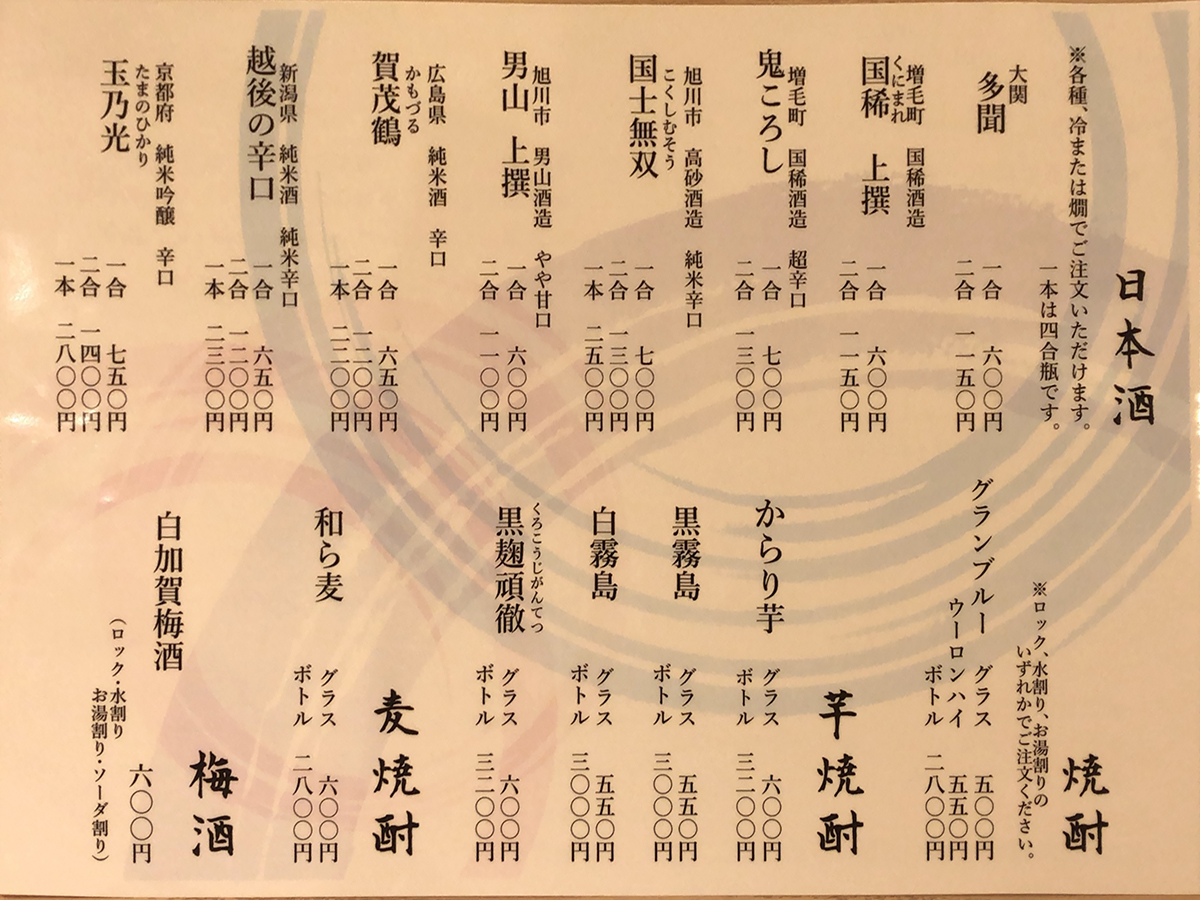 日本酒
※各種、冷または燗でご注文いただけます。
一本は四合瓶です。
大関
多聞
一合 六〇〇円
二合 一一五〇円
増毛町 国稀酒造
くにまれ
国稀 上撰
一合 六〇〇円
二合 一一五〇円
増毛町 国稀酒造 超辛口
鬼ころし
一合 七〇〇円
二合 一三〇〇円
旭川市 高砂酒造 純米辛口
こくしむそう
国士無双
一合 七〇〇円
二合 一三〇〇円
一本 二五〇〇円
旭川市 男山酒造 やや甘口
男山 上撰
一合 六〇〇円
二合 一一〇〇円
広島県 純米酒 辛口
かもづる
賀茂鶴
一合 六五〇円
二合 一二〇〇円
一本 二二〇〇円
新潟県 純米酒 純米辛口
越後の辛口
一合 六五〇円
二合 一二〇〇円
一本 二三〇〇円
京都府 純米吟醸 辛口
たまのひかり
玉乃光
一合 七五〇円
二合 一四〇〇円
一本 二八〇〇円
焼酎
※ロック、水割り、お湯割りの
いずれかでご注文ください。
グランブルー
グラス 五〇〇円
ウーロンハイ 五五〇円
ボトル 二八〇〇円
芋焼酎
からり芋
グラス 六〇〇円
ボトル 三二〇〇円
黒霧島
グラス 五五〇円
ボトル 三〇〇〇円
白霧島
グラス 五五〇円
ボトル 三〇〇〇円
くろこうじがんてつ
黒麹頑徹
グラス 六〇〇円
ボトル 三二〇〇円
麦焼酎
和ら麦
グラス 六〇〇円
ボトル 二八〇〇円
梅酒
白加賀梅酒
六〇〇円
（ロック・水割り
お湯割り・ソーダ割り）